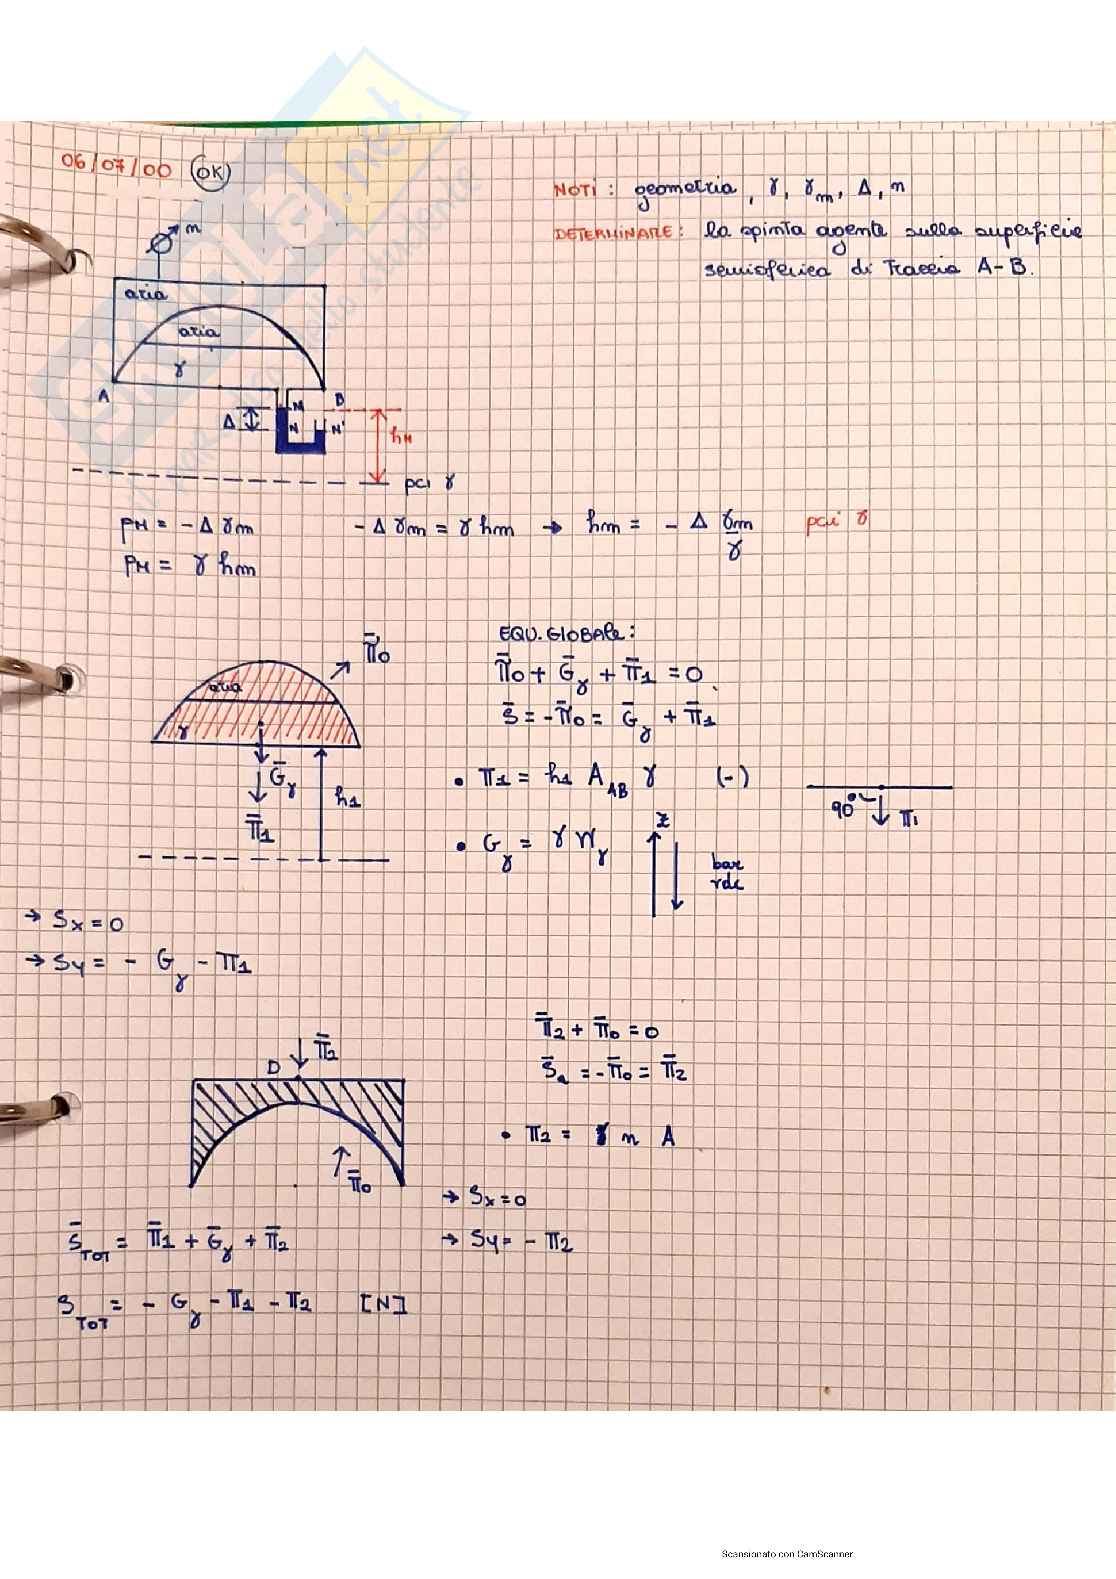 06/07/00 OK
NOTI: geometria, γ, γm, Δ, n
DETERMINARE: la spinta agente sulla superficie
semisferica di Traccia A-B.
n
aria
aria
γ
A
B
Δ
M
N
N'
hM
pci γ
pM = - Δ γm
- Δ γm = γ hm → hm = - Δ γm/γ
pci γ
pM = γ hm
Π̄0
EQU. GLOBALE:
aria
γ
Π̄0 + Ḡγ + Π̄1 = 0
S̄ = -Π̄0 = Ḡγ + Π̄1
Ḡγ
Π̄1
h1
• Π1 = h1 A_AB γ (-)
90°
Π1
• Gγ = γ Wγ
z
bar
rdc
→ Sx = 0
→ Sy = - Gγ - Π1
Π̄2 + Π̄0 = 0
S̄a = -Π̄0 = Π̄2
D
Π̄2
• Π2 = n A
Π̄0
→ Sx = 0
→ Sy = - Π2
S̄TOT = Π̄1 + Ḡγ + Π̄2
STOT = - Gγ - Π1 - Π2 [N]
Scansionato con CamScanner